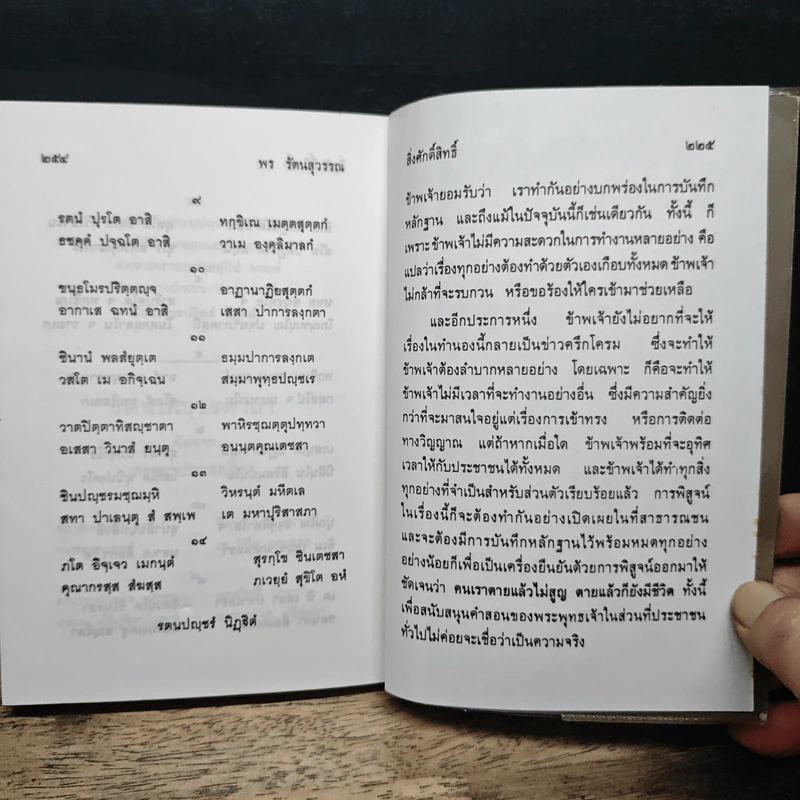 ๒๕๔ พร รัตนสุวรรณ
๙
รตนํ ปุรโต อาสิ ทกฺขิเณ เมตฺตสุตฺตกํ
ธชคฺคํ ปจฺฉโต อาสิ วาเม องฺคุลิมาลกํ
๑๐
ขนฺธโมรปริตฺตญฺจ อาฏานาฏิยสุตฺตกํ
อากาเส ฉทนํ อาสิ เสสา ปาการลงฺกตา
๑๑
ชินานํ พลสํยุตฺเต ธมฺมปาการลงฺกเต
วสโต เม อกิจฺเฉน สมฺมาพุทฺธปญฺชเร
๑๒
วาตปิตฺตาทิสญฺชาตา พาหิรชฺฌตฺตุปทฺทวา
อเสสา วินาสํ ยนฺตุ อนนฺตคุณเตชสา
๑๓
ชินปญฺชรมชฺฌมฺหิ วิหรนฺตํ มหีตเล
สทา ปาเลนฺตุ สํ สพฺเพ เต มหาปุริสาสภา
๑๔
ภโต อิจฺเจว เมกนฺตํ สุรกฺโข ชินเตชสา
คุณากรสฺส สํฆสฺส ภเวยฺยํ สุขิโต อหํ
รตนปญฺชรํ นิฏฺฐิตํ
สิ่งศักดิ์สิทธิ์ ๒๒๕
ข้าพเจ้ายอมรับว่า เราทำกันอย่างบกพร่องในการบันทึก
หลักฐาน และถึงแม้ในปัจจุบันนี้ก็เช่นเดียวกัน ทั้งนี้ ก็
เพราะข้าพเจ้าไม่มีความสะดวกในการทำงานหลายอย่าง คือ
แปลว่าเรื่องทุกอย่างต้องทำด้วยตัวเองเกือบทั้งหมด ข้าพเจ้า
ไม่กล้าที่จะรบกวน หรือขอร้องให้ใครเข้ามาช่วยเหลือ
และอีกประการหนึ่ง ข้าพเจ้ายังไม่อยากที่จะให้
เรื่องในทำนองนี้กลายเป็นข่าวครึกโครม ซึ่งจะทำให้
ข้าพเจ้าต้องลำบากหลายอย่าง โดยเฉพาะ ก็คือจะทำให้
ข้าพเจ้าไม่มีเวลาที่จะทำงานอย่างอื่น ซึ่งมีความสำคัญยิ่ง
กว่าที่จะมาสนใจอยู่แต่เรื่องการเข้าทรง หรือการติดต่อ
ทางวิญญาณ แต่ถ้าหากเมื่อใด ข้าพเจ้าพร้อมที่จะอุทิศ
เวลาให้กับประชาชนได้ทั้งหมด และข้าพเจ้าได้ทำทุกสิ่ง
ทุกอย่างที่จำเป็นสำหรับส่วนตัวเรียบร้อยแล้ว การพิสูจน์
ในเรื่องนี้ก็จะต้องทำกันอย่างเปิดเผยในที่สาธารณชน
และจะต้องมีการบันทึกหลักฐานไว้พร้อมหมดทุกอย่าง
อย่างน้อยก็เพื่อเป็นเครื่องยืนยันด้วยการพิสูจน์ออกมาให้
ชัดเจนว่า คนเราตายแล้วไม่สูญ ตายแล้วก็ยังมีชีวิต ทั้งนี้
เพื่อสนับสนุนคำสอนของพระพุทธเจ้าในส่วนที่ประชาชน
ทั่วไปไม่ค่อยจะเชื่อว่าเป็นความจริง